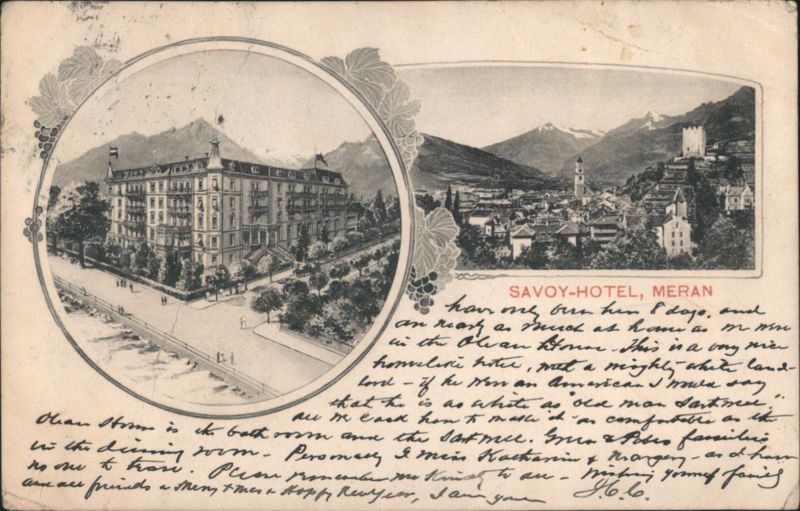 SAVOY-HOTEL, MERAN
have only been here 8 days, and
are nearly as much at home as we were
in the Ocean House. This is a very nice
homelike hotel, with a mighty white land-
lord - if he were an American I would say
that he is as white as "old man
all we lack here to make it as comfortable as the
Ocean House is the bath room and the families
in the dining room - Personally I miss Katharine & Margery - as I have
no one to tease. Please remember me kindly to all - Wishing yourself family
and all friends a Merry Xmas & Happy New Year, I am yours H.C.